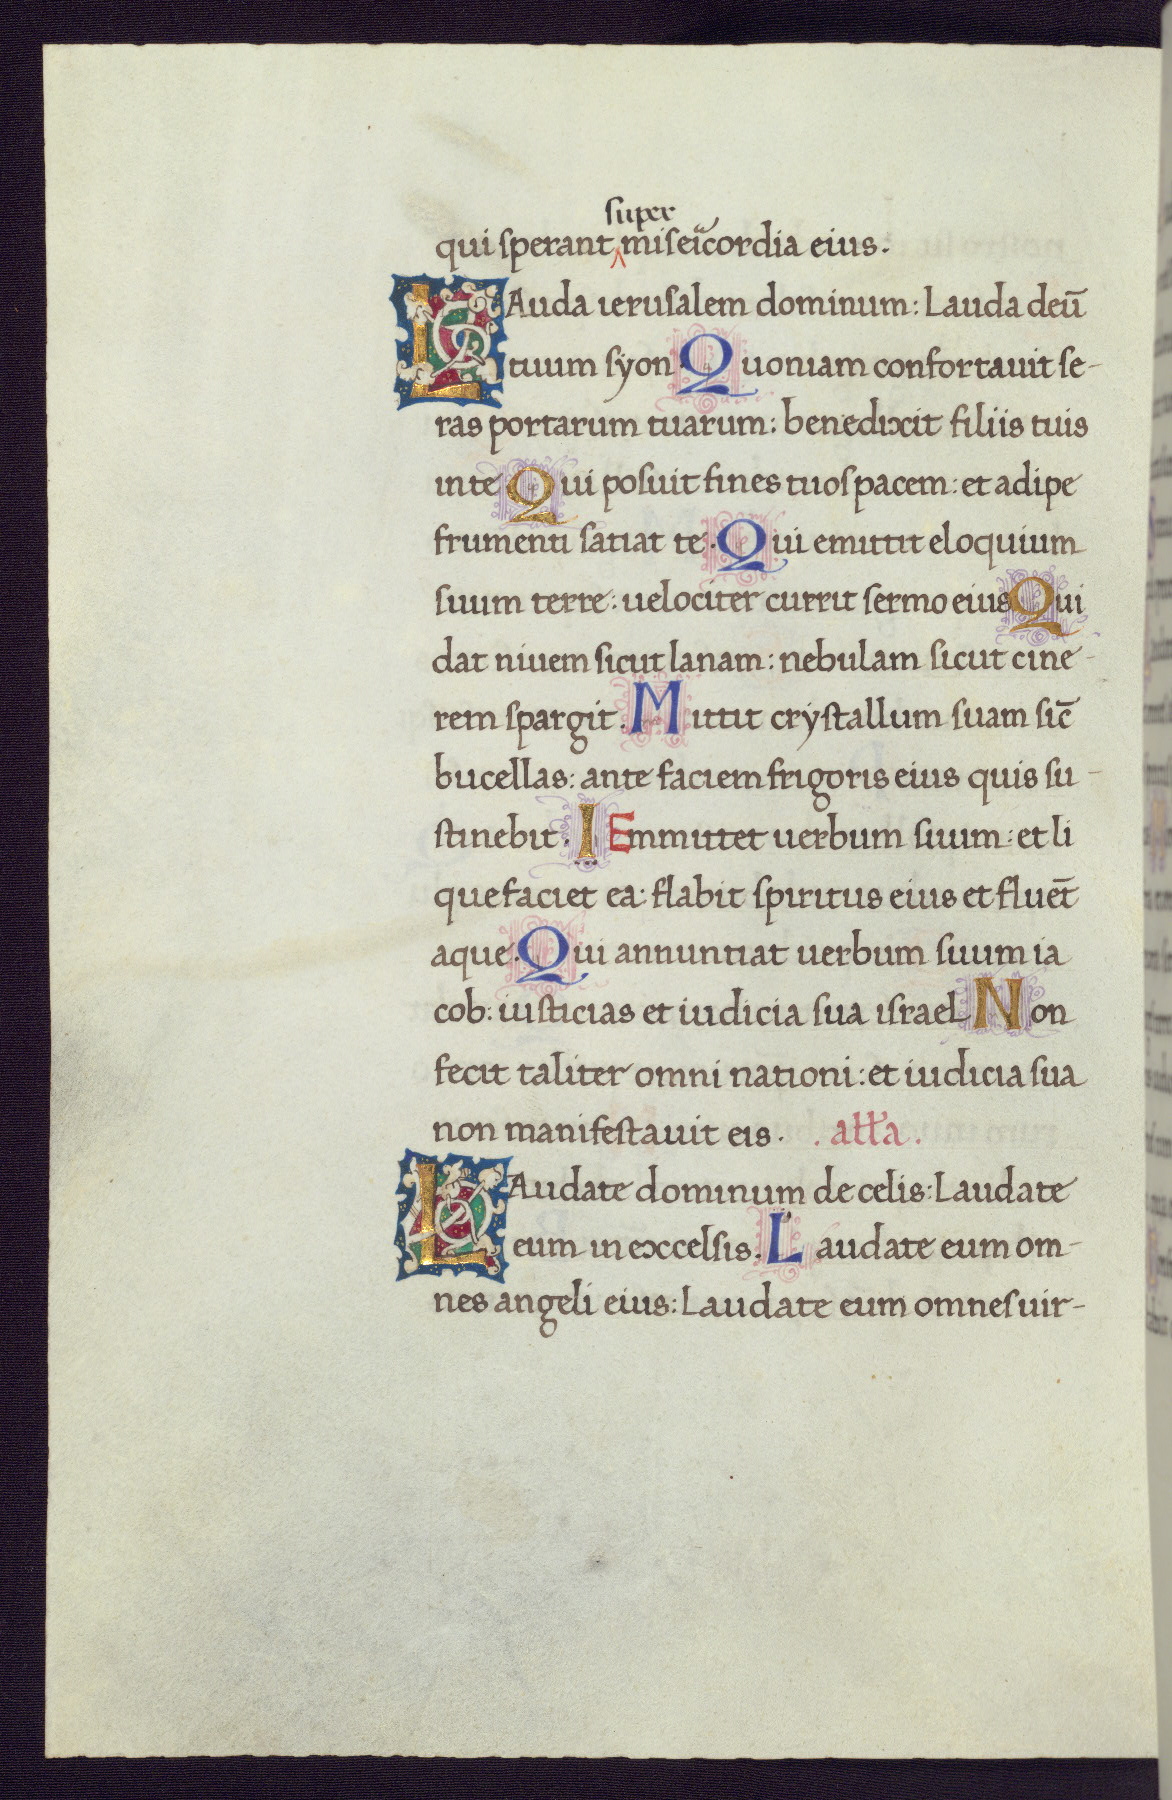 super
qui sperant misericordia eius.
LAuda ierusalem dominum: Lauda deū
tuum syon Quoniam confortauit se-
ras portarum tuarum: benedixit filiis tuis
in te Qui posuit fines tuos pacem: et adipe
frumenti satiat te. Qui emittit eloquium
suum terre: uelociter currit sermo eius Qui
dat niuem sicut lanam: nebulam sicut cine-
rem spargit. Mittit crystallum suam sic̄
bucellas: ante faciem frigoris eius quis su-
stinebit. I Emmittet uerbum suum: et li
quefaciet ea: flabit spiritus eius et fluēt
aque. Qui annuntiat uerbum suum ia
cob: iusticias et iudicia sua israel Non
fecit taliter omni nationi: et iudicia sua
non manifestauit eis. . alła .
LAudate dominum de celis: Laudate
eum in excelsis. Laudate eum om-
nes angeli eius: Laudate eum omnes uir-